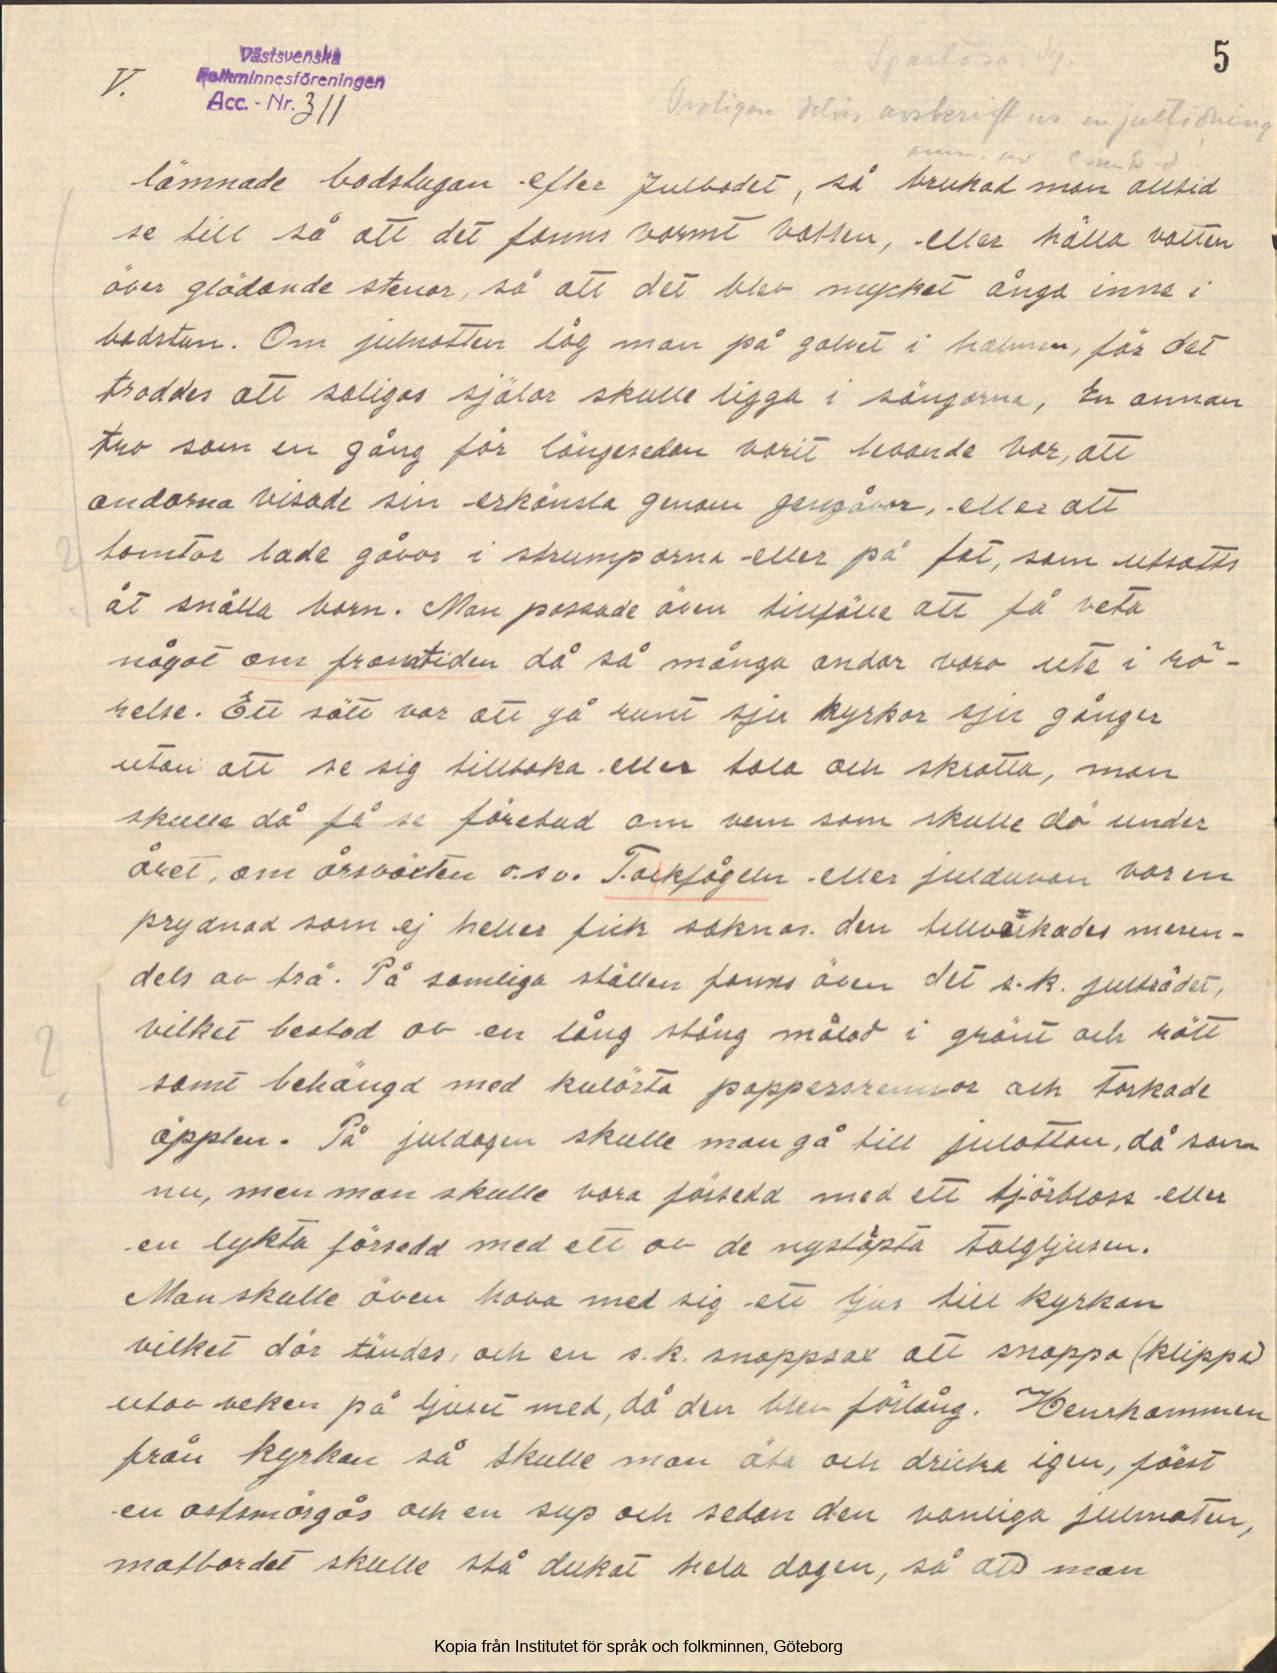 5
V.
Västsvenska
Folkminnesföreningen
Acc. - Nr. 311
avskrift ur en jultidning
lämnade badstugan efter Julbadet, så brukad man alltid
se till så att det fanns varmt vatten, eller hälla vatten
över glödande stenar, så att det blev mycket ånga inne i
badstun. Om julnatten låg man på golvet i halmen, för det
troddes att saligas själar skulle ligga i sängarna, En annan
tro som en gång för längesedan varit levande var, att
andarna visade sin erkänsla genom gengåvor, eller att
tomtar lade gåvor i strumporna eller på fat, som utsatts
åt snälla barn. Man passade även tillfälle att få veta
något om framtiden då så många andar voro ute i rö-
relse. Ett sätt var att gå runt sju kyrkor sju gånger
utan att se sig tillbaka eller tala och skratta, man
skulle då få se förebud om vem som skulle dö under
året, om årsväxten o.s.v. Takfågeln eller julduvan var en
prydnad som ej heller fick saknas. den tillverkades meren-
dels av trä. På somliga ställen fanns även det s.k. julträdet,
vilket bestod av en lång stång målad i grönt och rött
samt behängd med kulörta pappersremsor och torkade
äpplen. På juldagen skulle man gå till julottan, då som
nu, men man skulle vara försedd med ett tjörbloss eller
en lykta försedd med ett av de nystöpta talgljusen.
Man skulle även hava med sig ett ljus till kyrkan
vilket där tändes, och en s.k. snoppsax att snoppa (klippa)
utav veken på ljuset med, då den blev förlång. Hemkommen
från kyrkan så skulle man äta och dricka igen, först
en ostsmörgås och en sup och sedan den vanliga julmaten,
matbordet skulle stå dukat hela dagen, så att man
2
?
Kopia från Institutet för språk och folkminnen, Göteborg